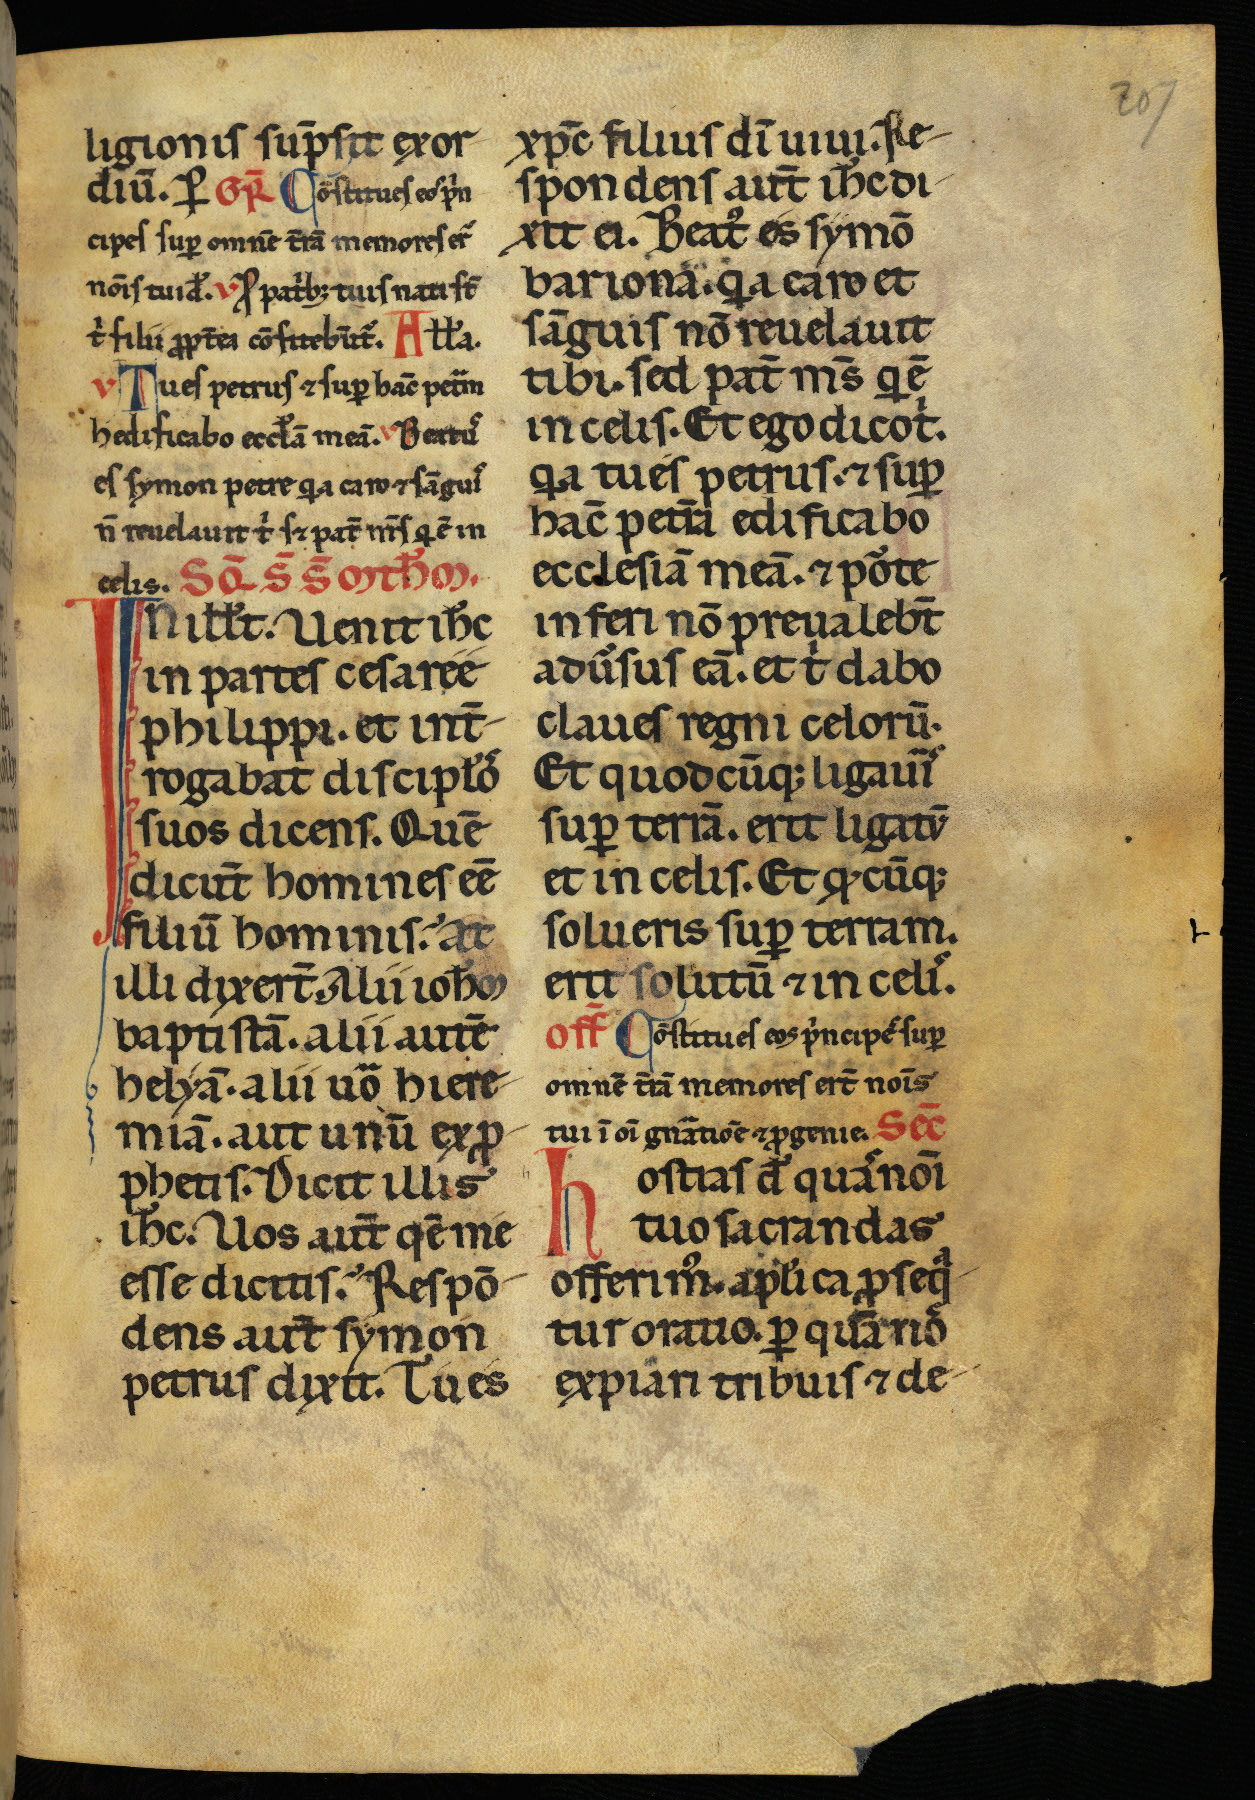 207
ligionis sūpsit exor-
diū. P̲ GR̄ Cōstitues eos p̍n
cipes sup̲ omnē t̄rā memores er̄t
nōis tui d̄. V P̲ patribꝫ tuis nati st̄
t̍ filii ꝓpt̄ea cōfitebūt᷑. All̄a.
V Tu es petrus ⁊ sup̲ hāc pet̄m
hedificabo eccl̄ā meā. V Beatus
es symon petre qa caro ⁊ sāguis
n̄ reuelauit t̍ sꝫ pat̄ m̄s q ē in
celis. SQ̄ S̄ S̄ MTH̄M.
IN ill̄ t. Uenit ih̄c
in partes cesaree
philippi. et int̄-
rogabat discipl̄os
suos dicens. Quē
dicūt homines eē
filiū hominis. At
illi dixer̄t Alii ioh̄m
baptistā. alii autē
helyā. alii uo᷑ hiere-
miā. aut unū ex ꝓ-
phetis. Dicit illis
ih̄c. Uos aut̄ q̄ē me
esse dicitis. Respō-
dens aut̄ symon
petrus dixit. Tu es
xp̄c filius dī uiui. Re-
spondens aut̄ ih̄c di-
xit ei. Beatꝰ es symō
bariona. qa caro et
sāguis nō reuelauit
tibi. sed pat̄ m̄s q ē
in celis. Et ego dico t̍.
qa tu es petrus. ⁊ sup̲
hāc petrā edificabo
ecclesiā meā. ⁊ pōte
inferi nō preualeb̄t
adūsus eā. et t̍ dabo
claues regni celorū.
Et quodcūqꝫ ligau᷑is
sup̲ terrā. erit ligatū
et in celis. Et qͦcūqꝫ
solueris sup̲ terram.
erit solutū ⁊ in celis.
Off̄ Cōstitues eos p̍ncipes sup̲
omnē t̄rā memores er̄t nōis
tui ī oī gn̄atiōe ⁊ ꝓgenie. Sēc
hostias d̄ quas nōi
tuo sacrandas
offerimꝰ. apl̄ica ꝓseqa-
tur oratio. p̲ quā nos
expiari tribuis ⁊ de-